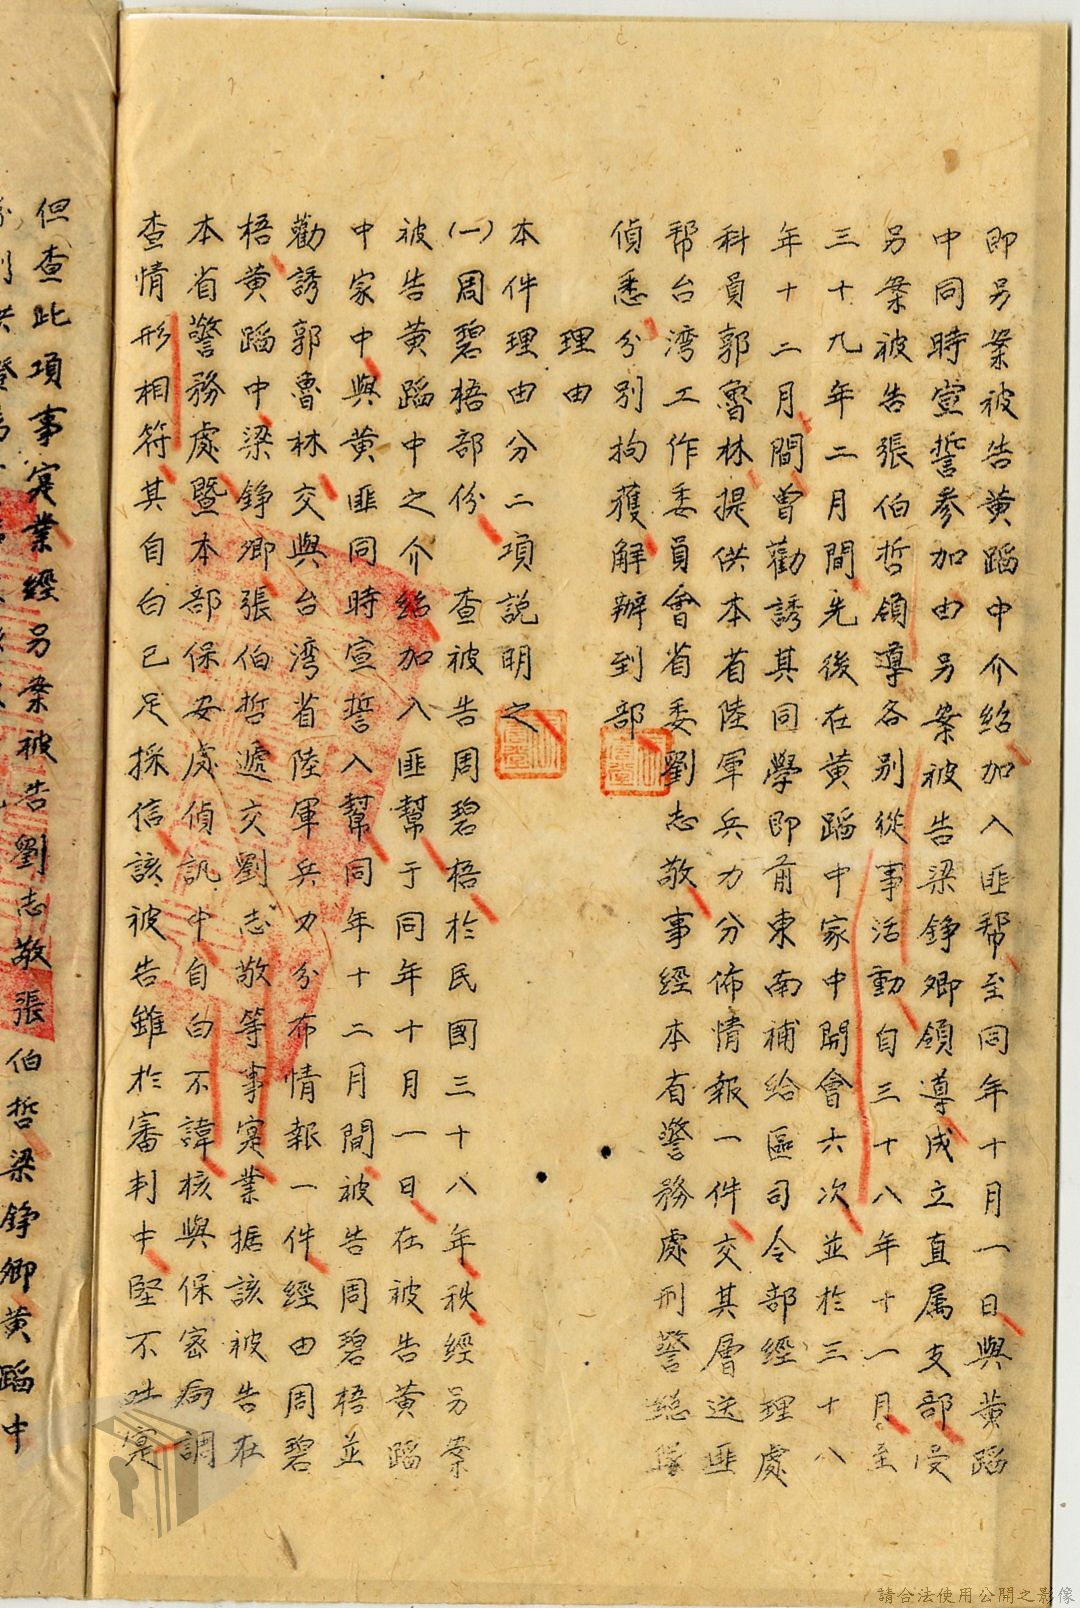 即另案被告黄蹈中介紹加入匪帮至同年十月一日與黄蹈
中同時宣誓参加由另案被告梁錚卿領導成立直属支部受
另案被告張伯哲領導各别從事活動自三十八年十一月至
三十九年二月間先後在黄蹈中家中開會六次並於三十八
年十二月間曾勸誘其同學即前東南補給區司令部經理處
科員郭魯林提供本省陸軍兵力分佈情報一件交其層送匪
帮台湾工作委員會省委劉志敬事經本省警務處刑警總隊
偵悉分别拘獲解辦到部
理由
本件理由分二項説明之
(一)周碧梧部份 查被告周碧梧於民國三十八年秩經另案
被告黄蹈中之介紹加入匪幫于同年十月一日在被告黄蹈
中家中與黄匪同時宣誓入幫同年十二月間被告周碧梧並
勸誘郭魯林交與台湾省陸軍兵力分布情報一件經由周碧
梧黄蹈中梁錚卿張伯哲遞交劉志敬等事寔業据該被告在
本省警務處暨本部保安處偵訊中自白不諱核與保密局調
查情形相符其自白已足採信該被告雖於審判中堅不吐寔
但查此項事寔業經另案被告劉志敬張伯哲梁錚卿黄蹈中
請合法使用公開之影像